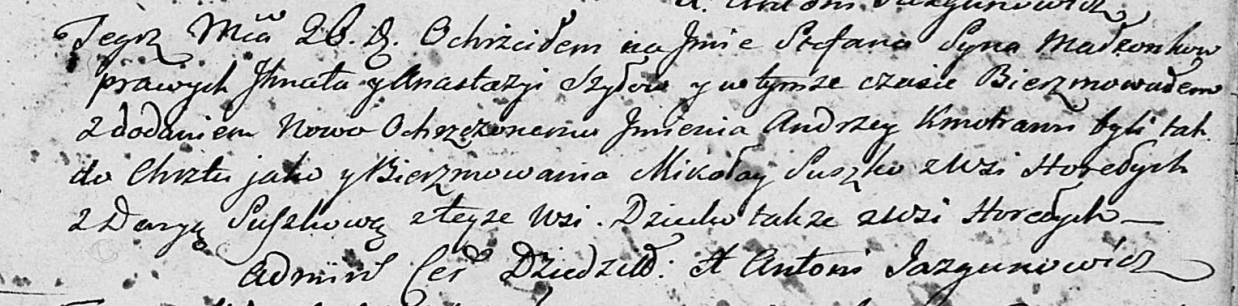 X. Antoni Jazgunowicz
Tegoż Mca 26. D. Ochrzciłem na Jmie Stefana Syna Małżonkow
prawych Jhnata y Anastazyi Szyłow y w tymże czasie Bierzmowałem
z dodaniem Nowo Ochrzczonemu Jmienia Andrzey Kmotrami byli tak
do Chrztu jako y Bierzmowania Mikołay Suszko z Wsi Horełych
z Daryą Suszkową z teyze Wsi. Dziecko takze z Wsi Horełych —
Admin Cer Dziedził: X Antoni Jazgunowicz